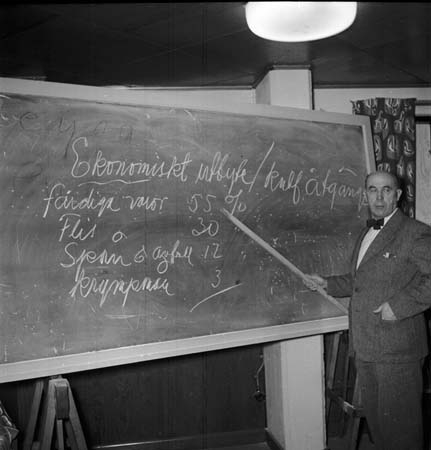 Ekonomiskt utbyte/kubf åtgång
färdiga varor 55 %
Flis 30
Spån o avfall 12
krympning 3